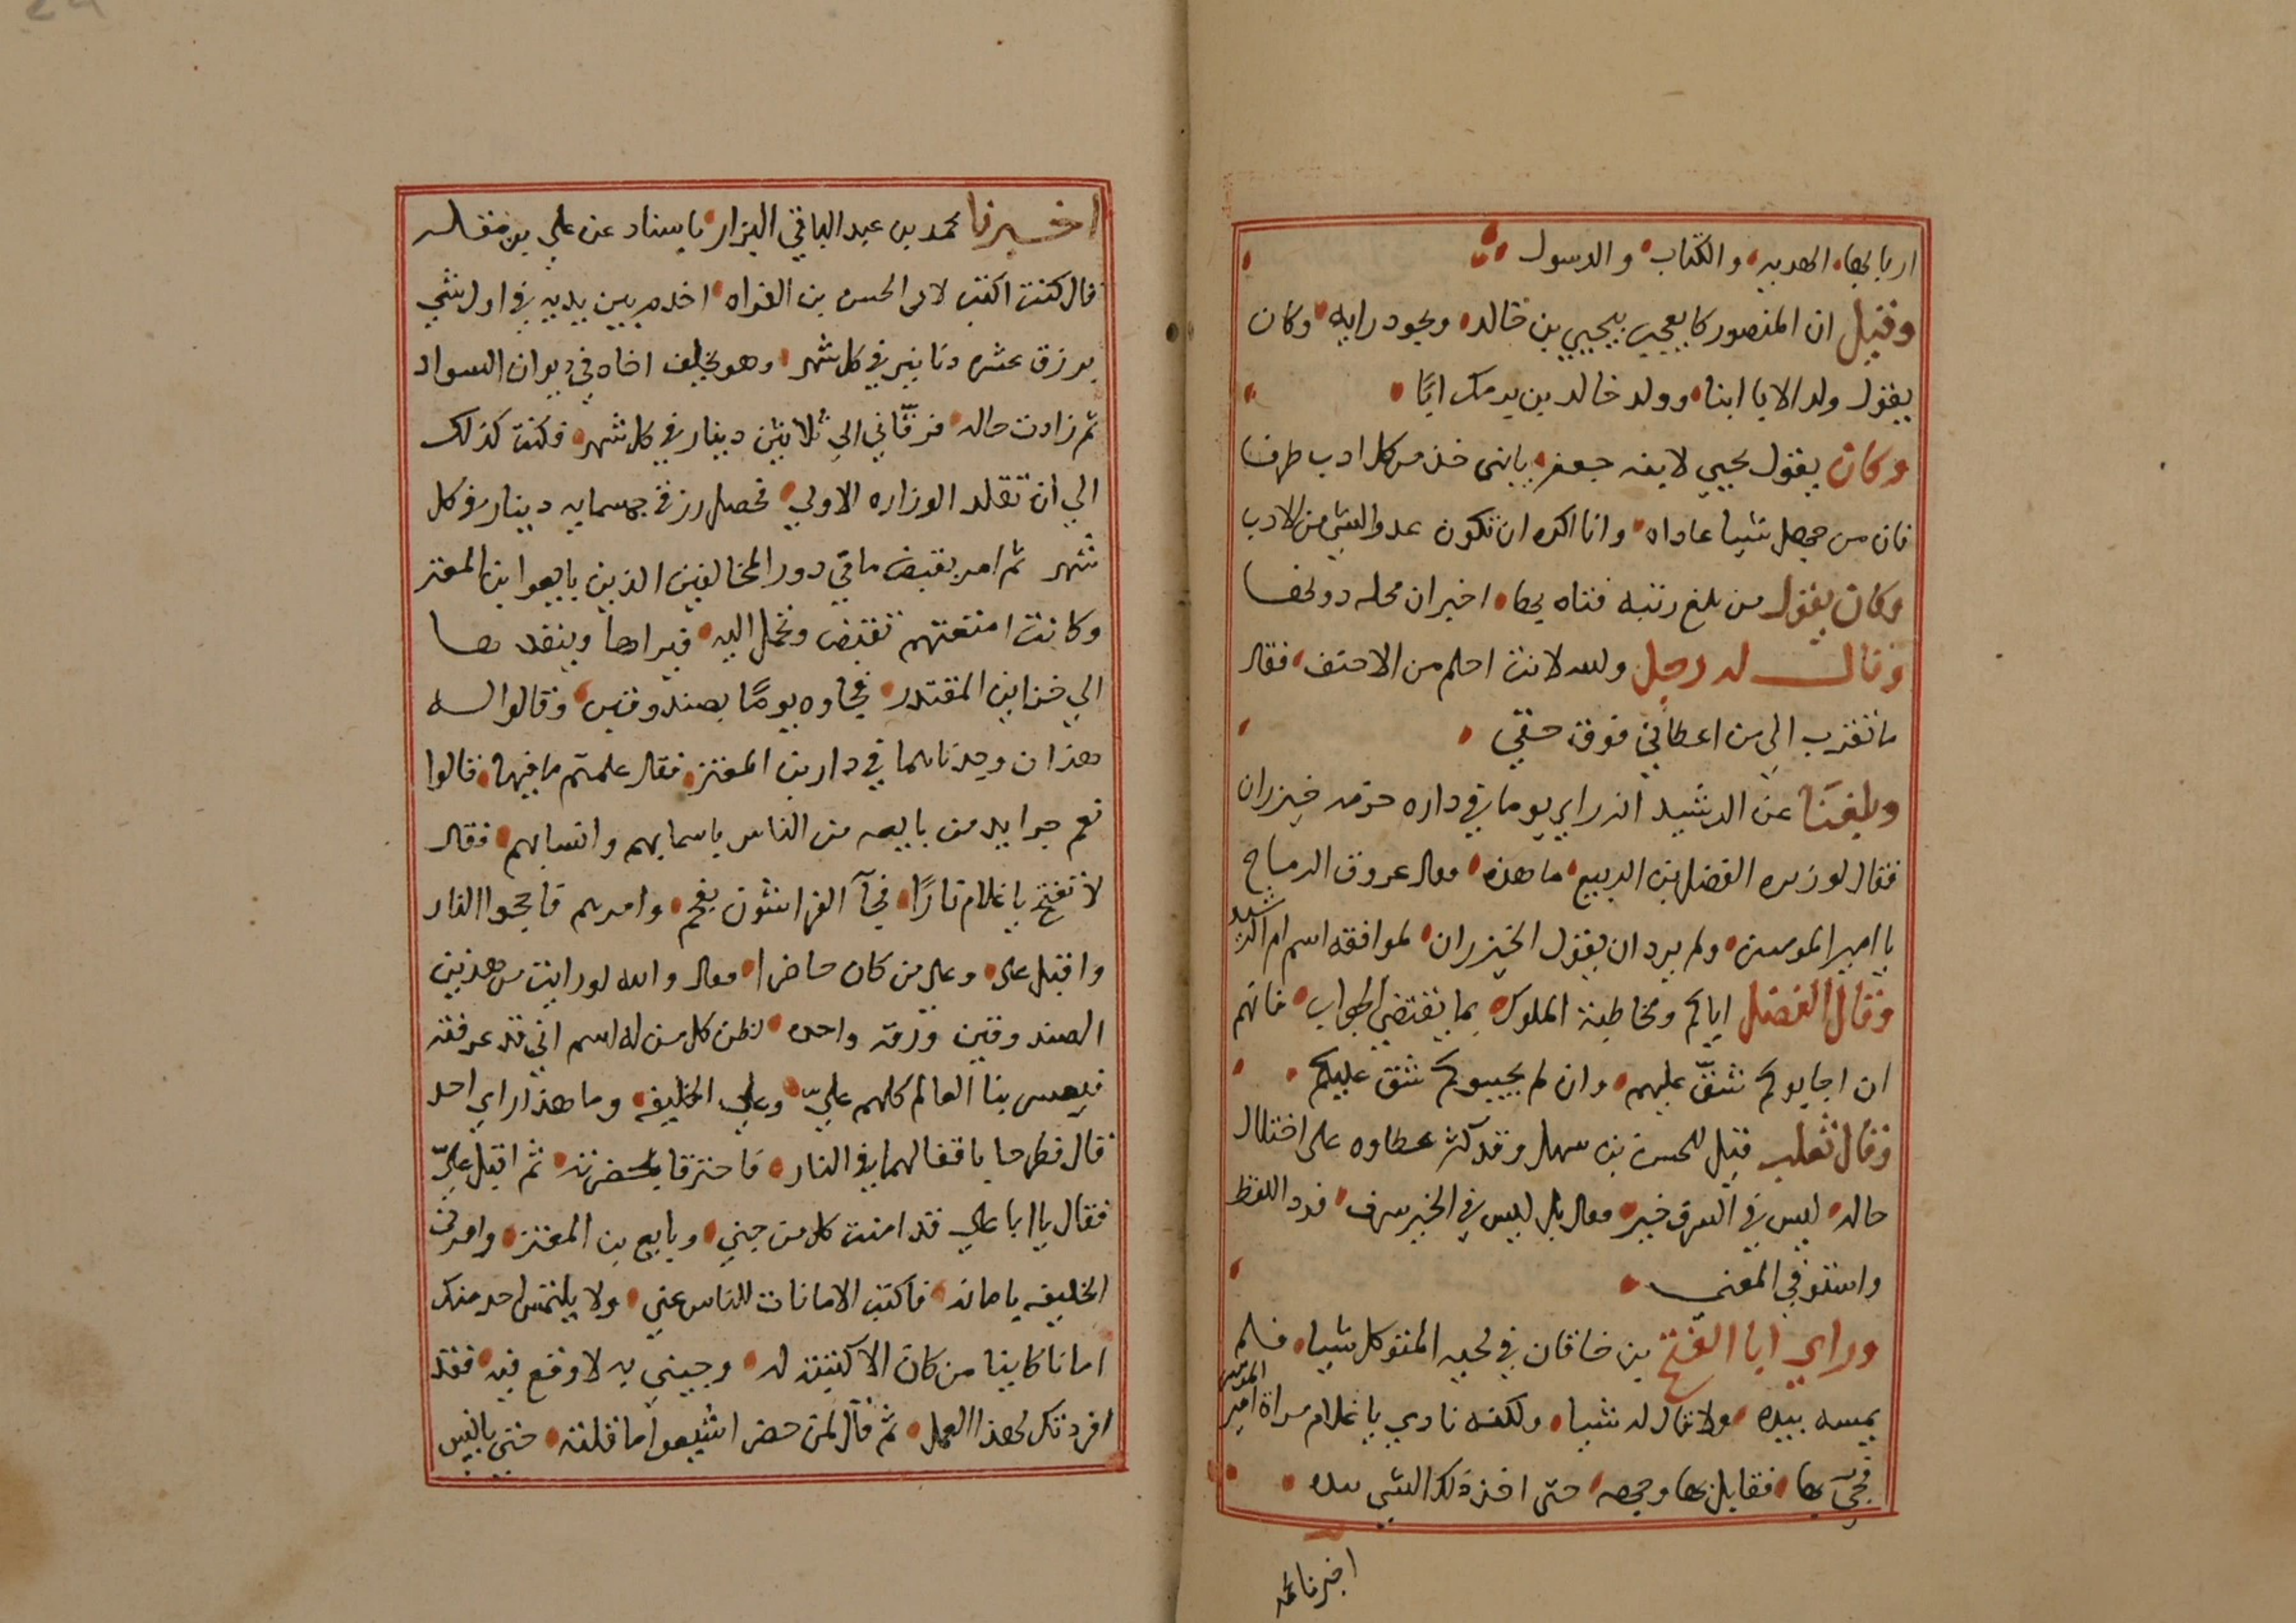 اربابها الهديه والكتاب والرسول
وقيل ان المنصور كا يعجب بيحيي بن خالد ويجود رايه وكان
يقول ولد الابا ابنا وولد خالد بن برمك ابًا
وكان يقول يحيي لابنه جعفر يابنى خذ من كل ادب طرفا
فان من جهل شيا عاداه وانا اكره ان تكون عدوا لشي من الادب
وكان يقول من بلغ رتبه فتاه بها اخبر ان محله دونها
وقال له رجل والله لانت احلم من الاحنف فقال
ما تقرب الي من اعطاني فوق حقي
وبلغنا عن الرشيد انه راي يوما في داره حزمه خيزران
فقال لوزيره الفضل بن الربيع ما هذه فقال عروق الرماح
يا امير المومنين ولم يرد ان يقول الخيزران لموافقه اسم ام الرشيد
وقال الفضل اياكم ومخاطبة الملوك بما يقتضي الجواب فانهم
ان اجابوكم شقّ عليهم وان لم يجيبوكم شق عليكم
وقال ثعلب قيل للحسن بن سهل وقد كثر عطاوه على اختلال
حاله ليس في السرف خير فقال بل ليس في الخير سرف فرد اللفظ
واستوفي المعنى
وراي ابا الفتح بن خاقان في لحيه المتوكل شيا فلم
يمسه بيده ولا قال له شيا ولكنه نادي يا غلام مراة امير المومنين
فجيّ بها فقابل بها وجهه حتى اخذ ذلك الشي بيده
اخبرنا محمد
اخبرنا محمد بن عبد الباقي البزار باسناد عن علي بن مقله
قال كنت اكتب لابي الحسن بن الفراه اخدم بين يديه في اول شي
برزق عشره دنانير في كل شهر وهو يخلف اخاه في ديوان السواد
ثم زادت حاله فرقّاني الي ثلاثين دينار في كل شهر فكنت كذلك
الي ان تقلد الوزاره الاولي فحصل رزقي خمسمايه دينار في كل
شهر ثم امر بقبض ما في دور المخالفين الذين بايعوا ابن المعتز
وكانت امتعتهم تقبض وتحمل اليه فيراها وينفد بها
الي خزاين المقتدر فجاوه يومًا بصندوقين وقالوا له
هذان وجدناهما في دار بن المعتز فقال علمتم ما فيهما قالوا
نعم جرايد من بايعه من الناس باسمايهم وانسابهم فقال
لا تفتح يا غلام نارًا فجآ الفراشون بفحم وامرهم فاججوا النار
واقبل علي وعلي من كان حاضرا فقال والله لو رايت من هذين
الصندوقين ورقه واحده لظن كل من له اسم اني قد عرفته
العالم كلهم عليّ وعلي الخليفه وما هذا راي احد
قال فطرحا باقفالهما في النار فاحترقا بحضرته ثم اقبل عليّ
فقال يا ابا علي قد امنت كل من جني وبايع بن المعتز وامرني
الخليفه بامانه فاكتب الامانات للناس عني ولا يلتمس احد منك
امانا كاينا من كان الا كتبته له وجيني به لاوقع فيه فقد
افردتك لهذا العمل ثم قال لمن حضر اشيعوا ما قلته حتى يانس